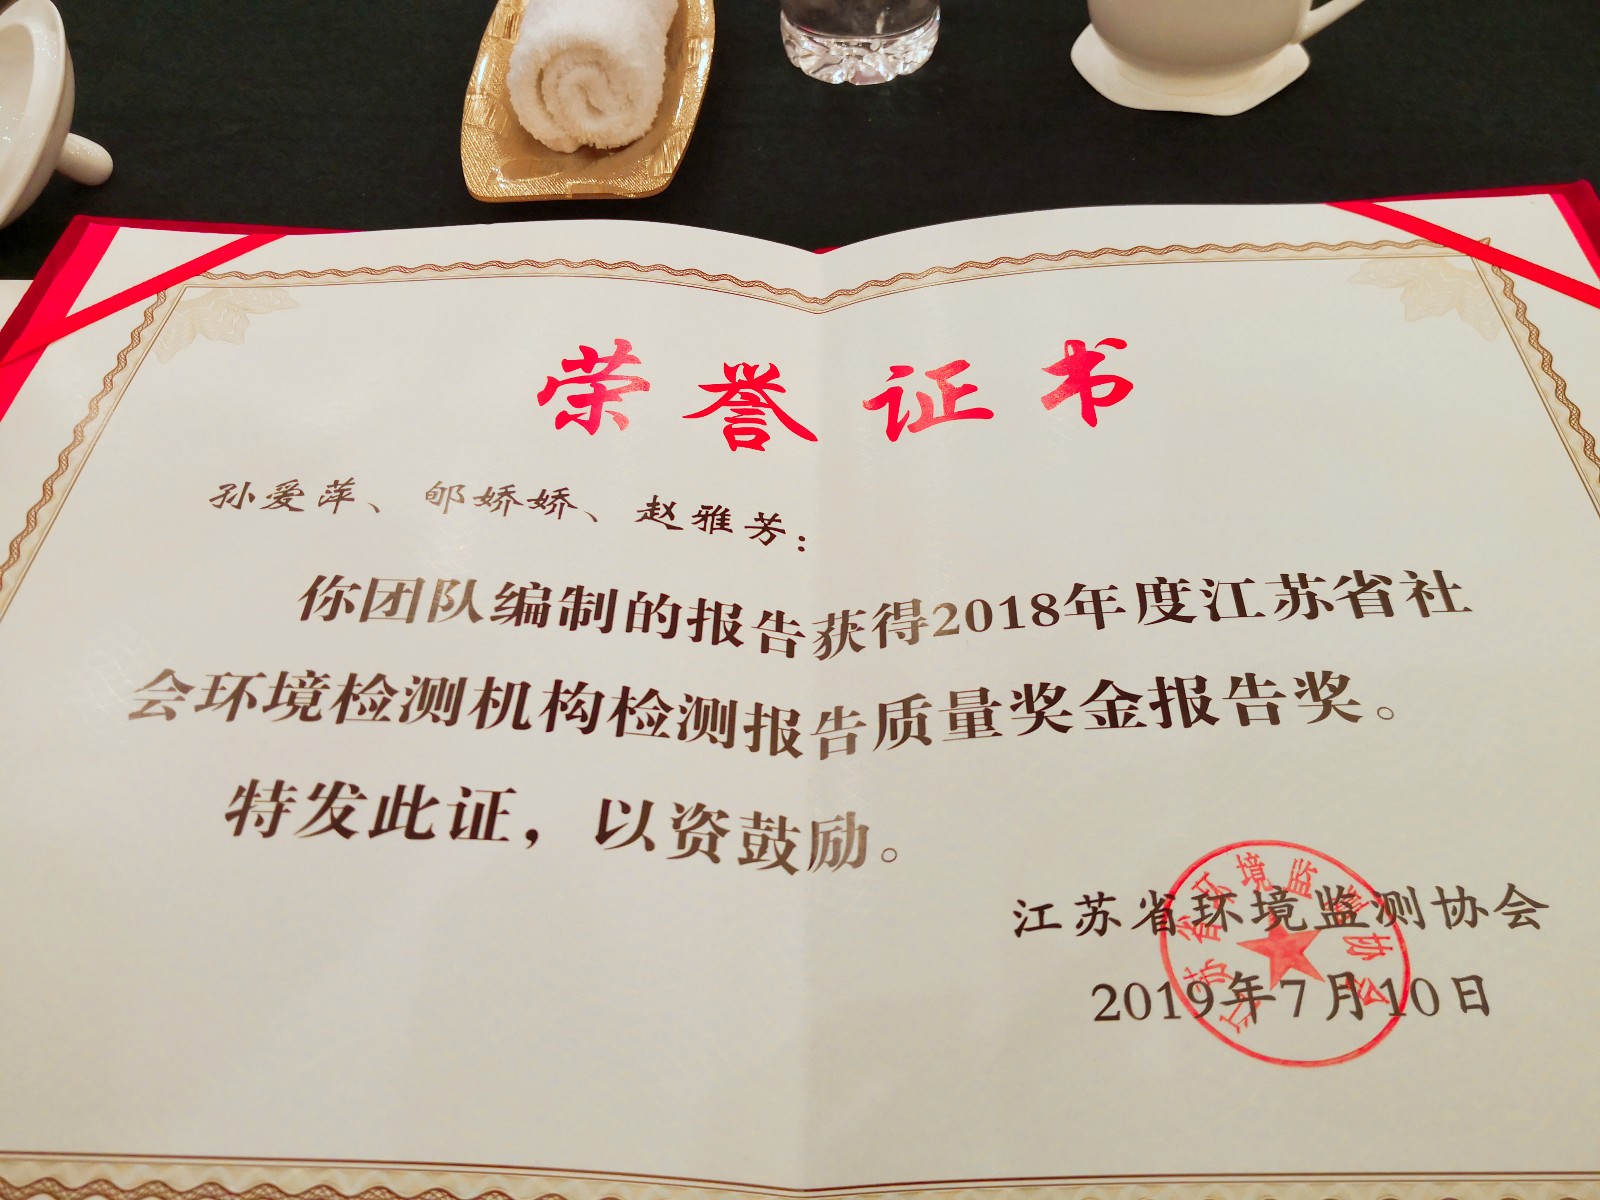 荣誉证书
孙爱萍、郇娇娇、赵雅芳：
你团队编制的报告获得2018年度江苏省社
会环境检测机构检测报告质量奖金报告奖。
特发此证，以资鼓励。
江苏省环境监测协会
2019年7月10日
江苏省环境监测协会